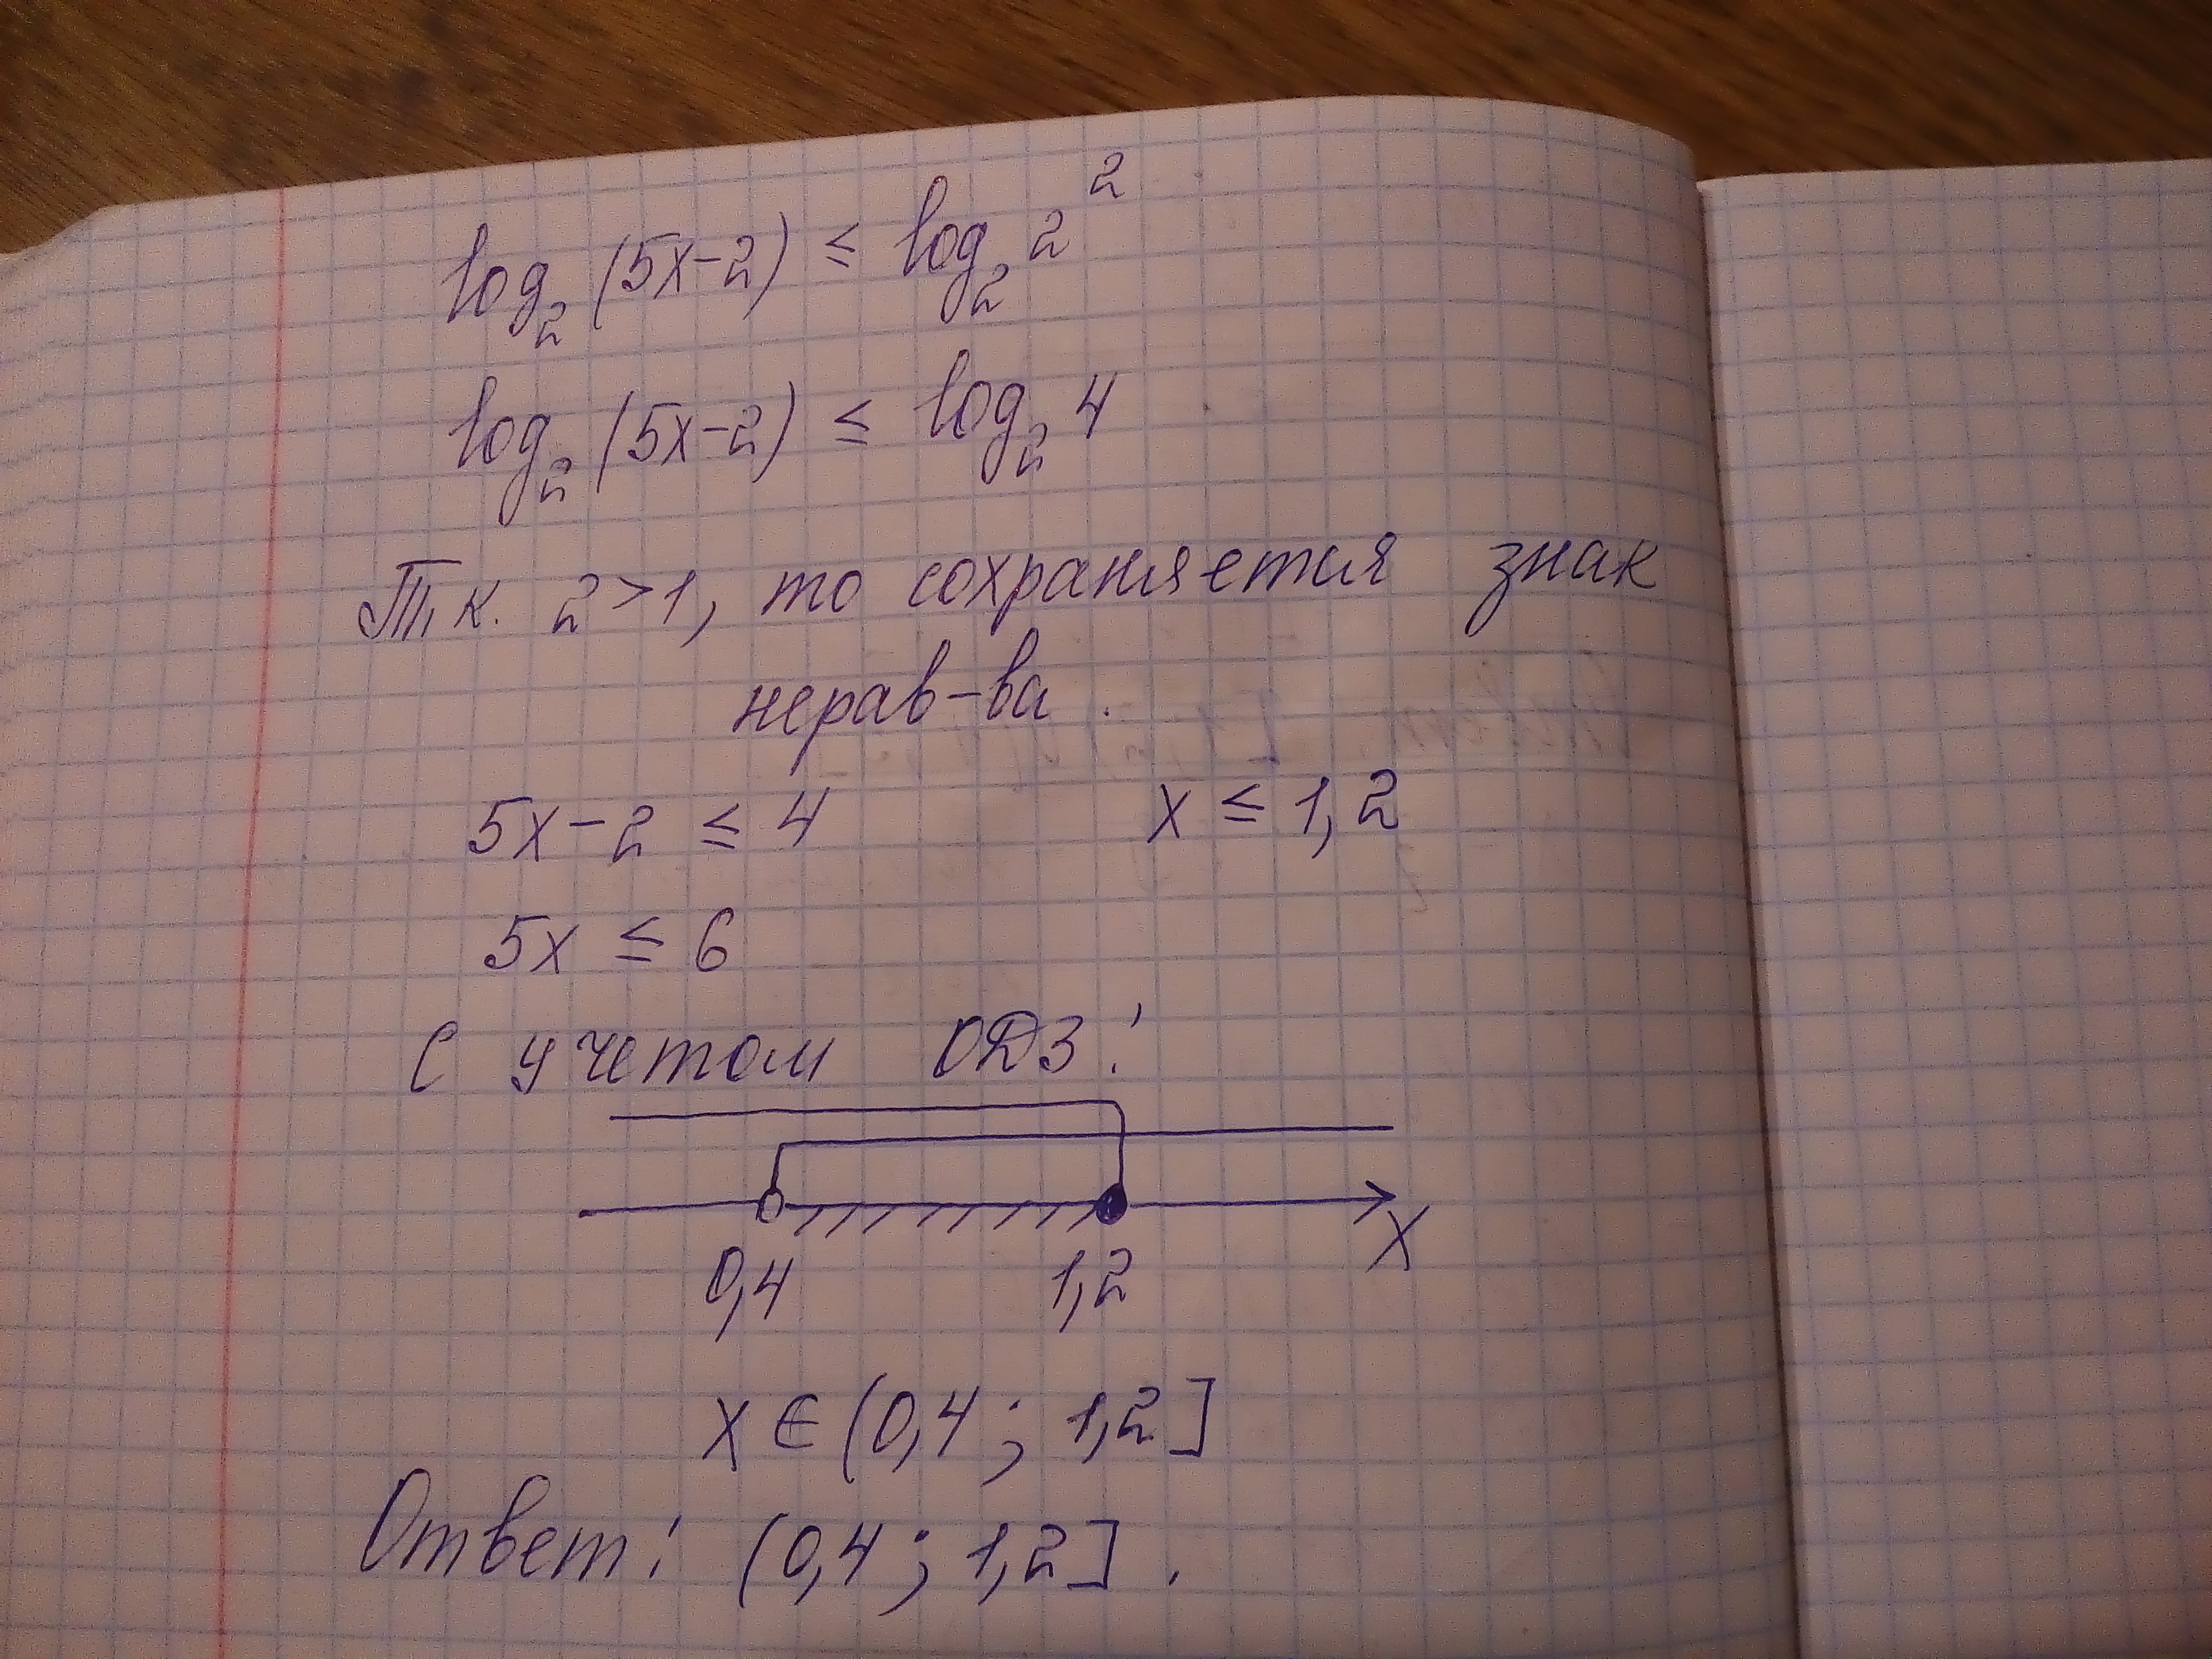 log₂(5x-2) ≤ log₂2²
log₂(5x-2) ≤ log₂4
Т.к. 2>1, то сохраняется знак
нерав-ва.
5x-2 ≤ 4 x ≤ 1,2
5x ≤ 6
С учетом ОДЗ:
0,4 1,2 X
x ∈ (0,4; 1,2]
Ответ: (0,4; 1,2].